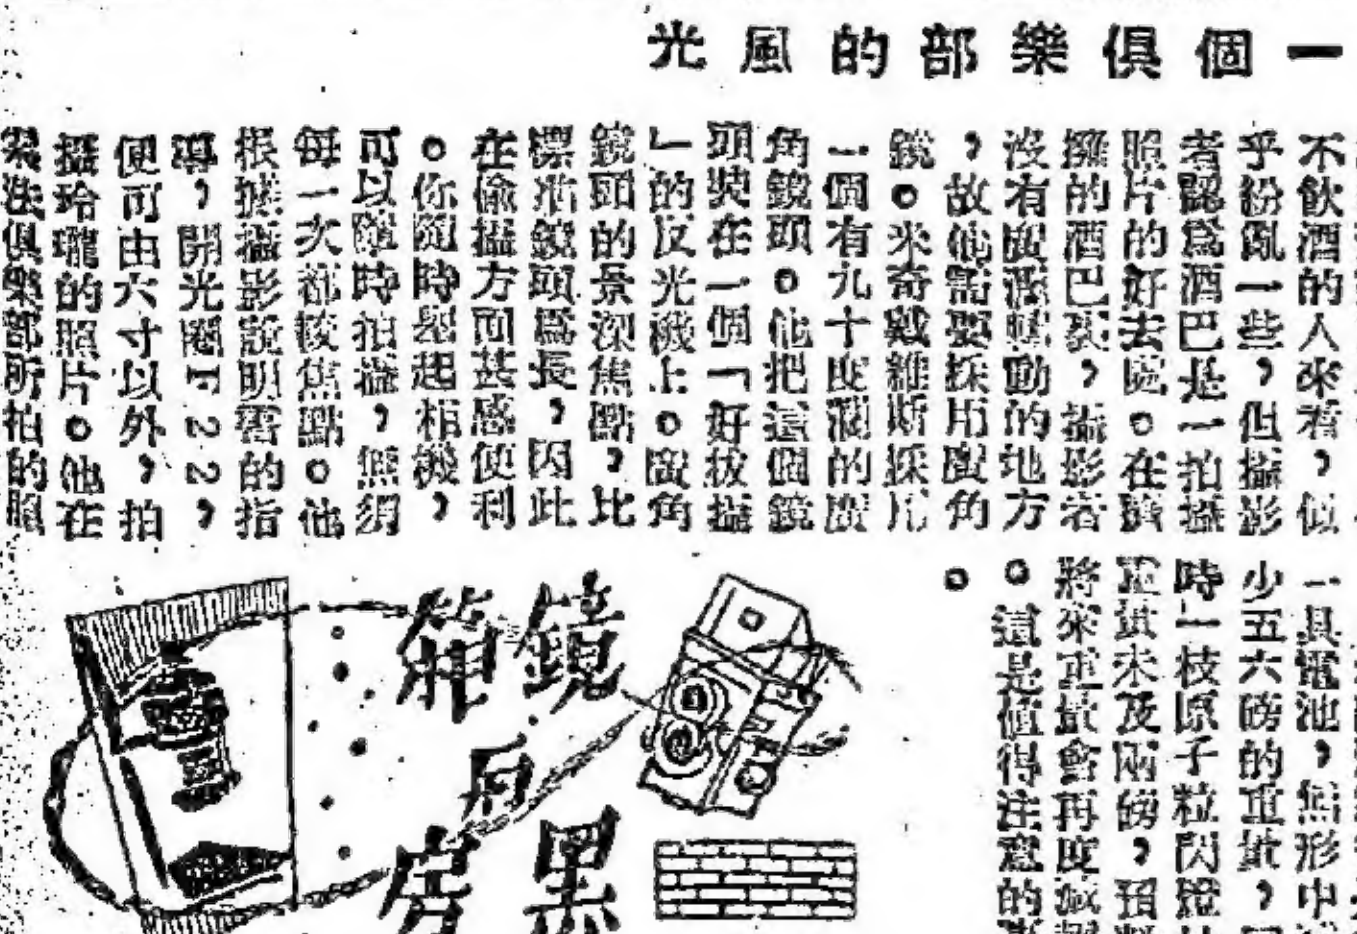 一個俱樂部的風光
不飲酒的人來看，似
乎紛亂一些，但攝影
者認爲酒巴是一拍攝
照片的好去處。在
擁的酒巴裏，攝影者
沒有廣濶走動的地方
，故他需要採用廣角
鏡。米奇戴維斯採用
一個有九十度濶的廣
角鏡頭。他把這個鏡
頭裝在一個「好拔攝
」的反光機上。廣角
鏡頭的景深焦點，比
標准鏡頭爲長，因此
在偷攝方面甚感便利
。你隨時舉起相機，
可以隨時拍攝，無須
每一次都較焦點。他
根據攝影說明書的指
導，開光圈F22，
便可由六寸以外，拍
攝玲瓏的照片。他在
俱樂部所拍的照
一具電池，無形中
少五六磅的重量，
時一枝原子粒閃燈
重量未及兩磅，預
將來重量會再度減
。這是值得注意的
。
鏡箱
與
黑房